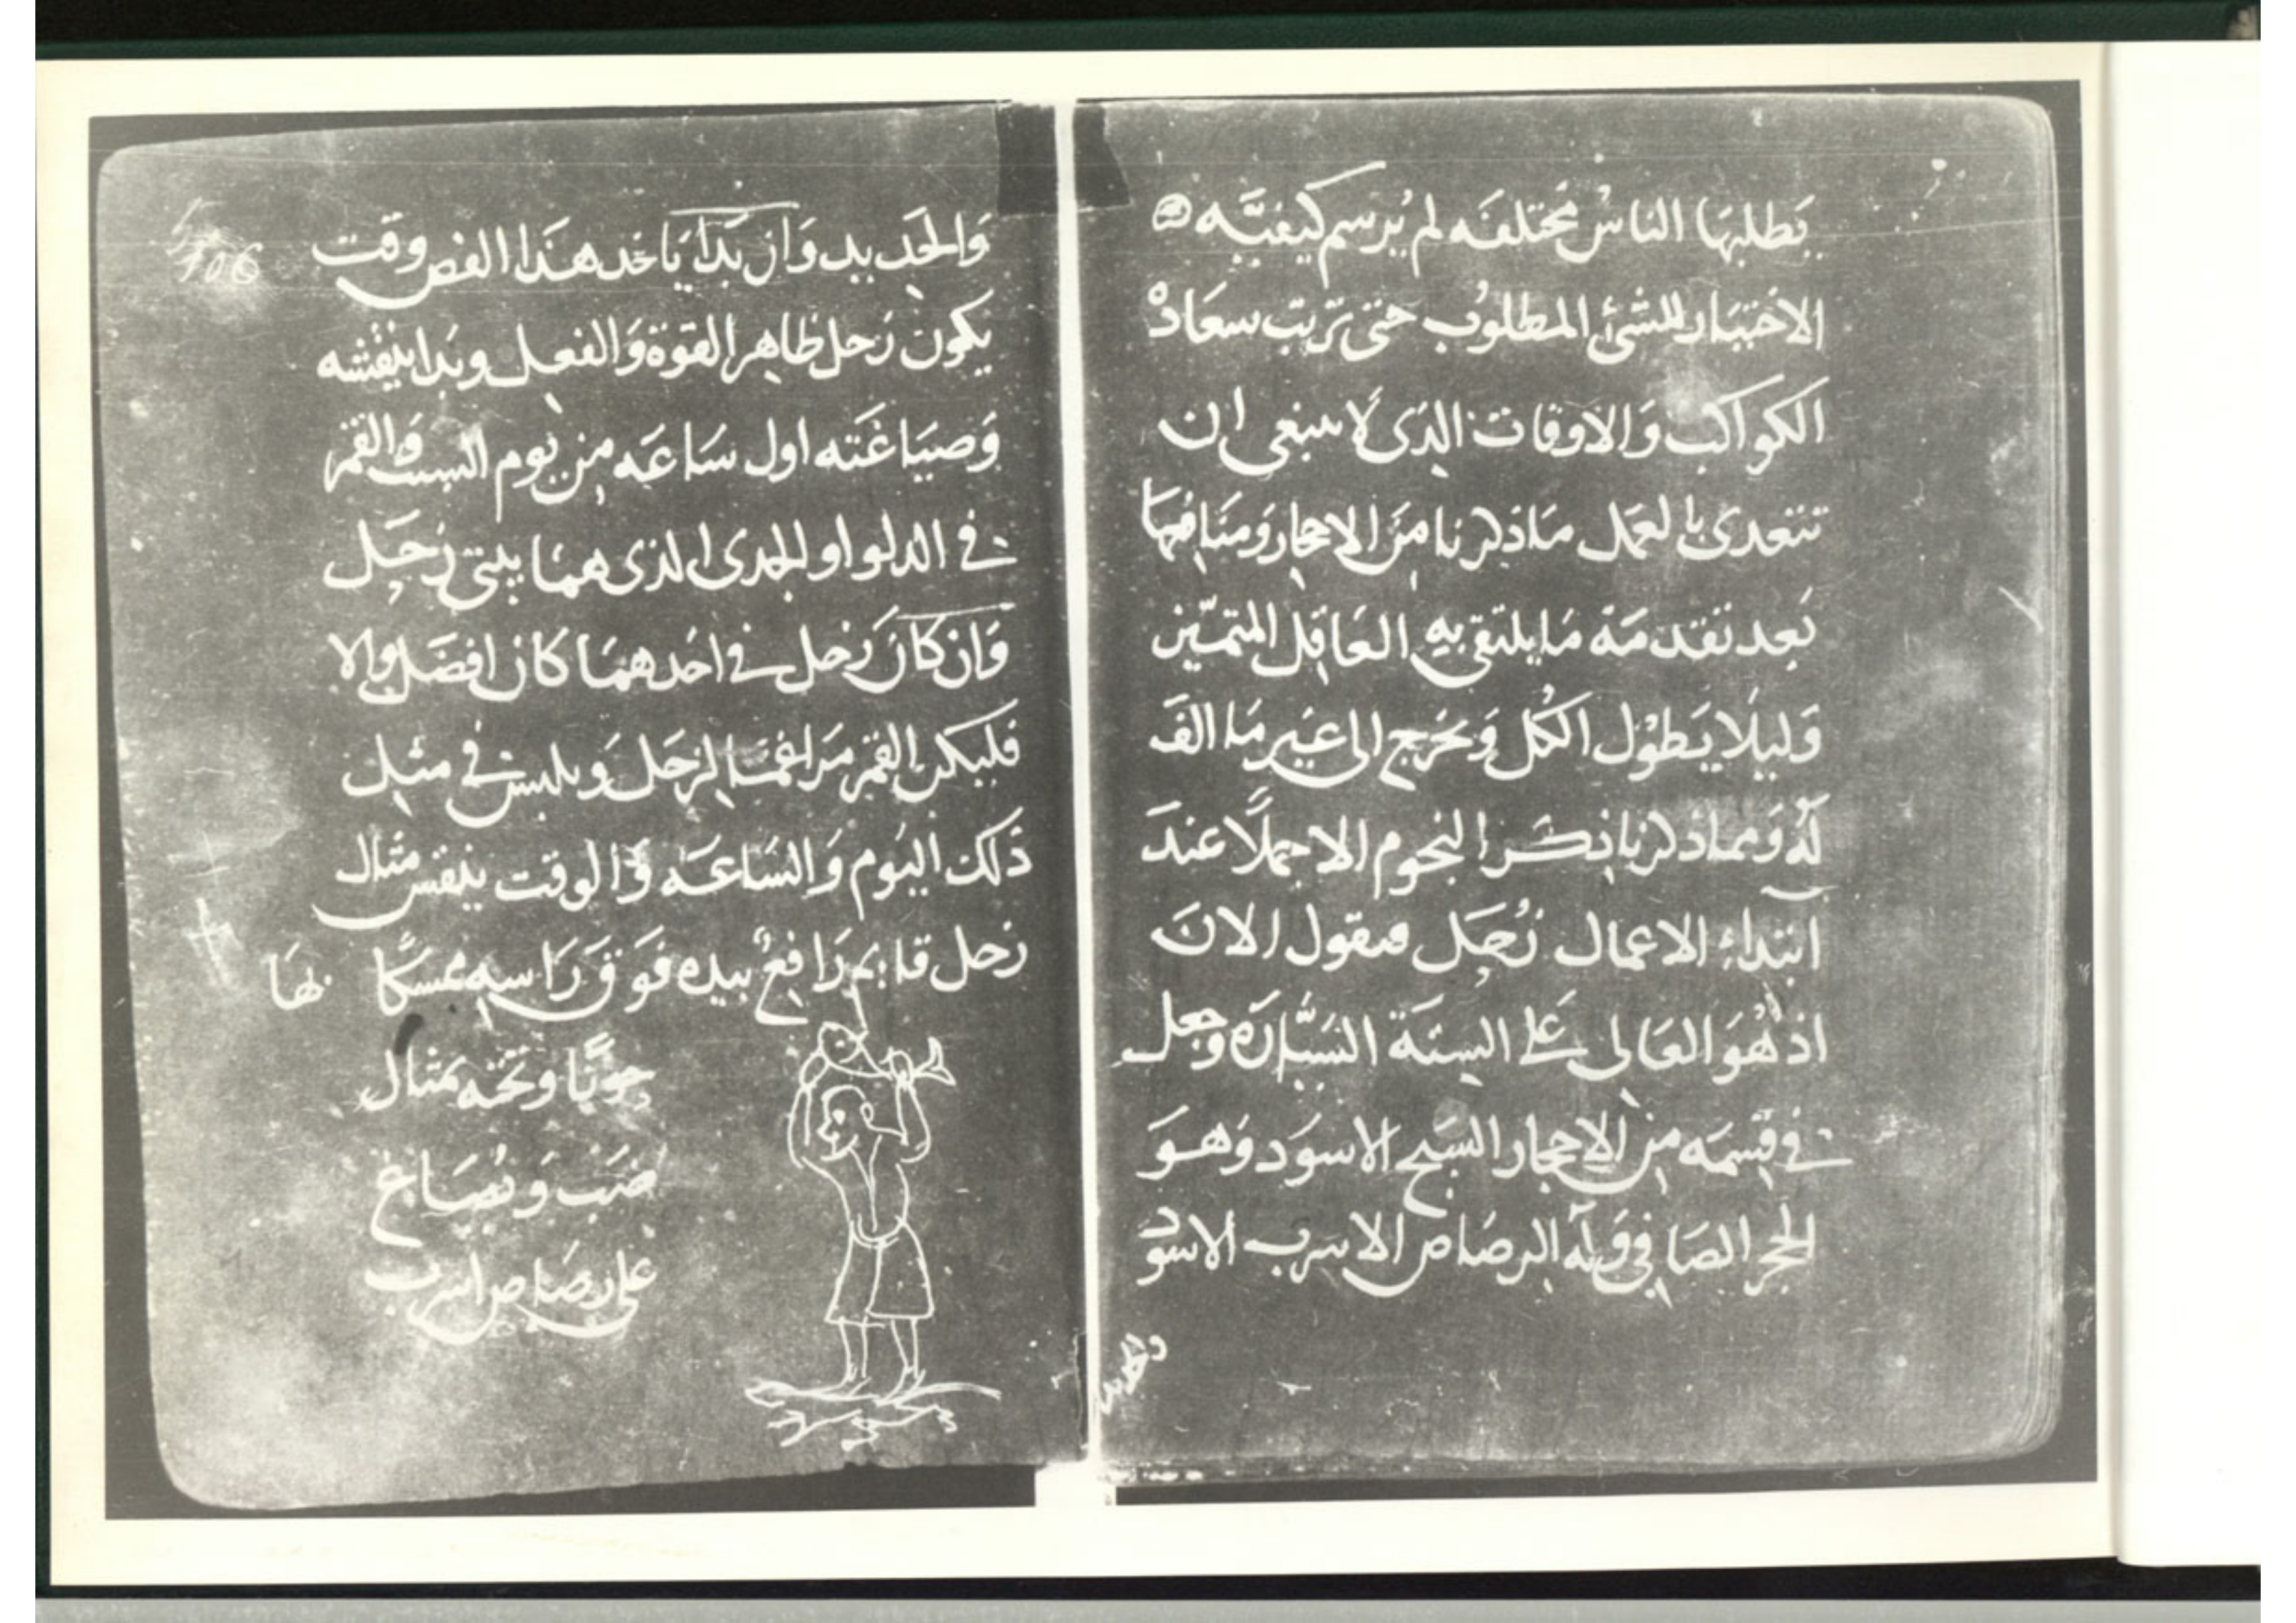 يَطلبهَا الناسُ مُختلفَه لم يُرسم كيفيَّه
الاختيار للشئ المطلوب حتى تريّب سعَادهْ
الكواكب وَالاوقات الذى لا ينبغى ان
تتعدى بالعمل مَا ذكرنا مِنَ الاحجار وَمنَافعهَا
بَعد تقدمَة مَا يلتقى بهِ العَاقِل المتميّز
وَليلَا يَطوْل الكُل وَيخرج الى غيَر مَا الفَ
لهُ وَمما ذكرنا ذِكر النجوم الاجملًا عندَ
ابتداءِ الاعمال زُحَل فنقول الانَ
اذ هُوَ العَالى على السِتَة السَيَّارَه وجعل
فى قِسمَه مِن الاحجار السَبج الاسوَد وَهوَ
الحجر الصَافى وَلهُ الرصَاص الاسرب الاسود
والحديد
106
وَالحَديد وَان بَدَا يَاخد هذا الفص وقت
يكون زحل ظاهِر القوة وَالفعل وبَدا بنِقشه
وَصيَاغَته اول سَاعَه مِن يَوم السبت وَالقمر
فى الدلو او الجدى الذى همَا بيتى زحَل
وَان كانَ زحل فى احَدهمَا كانَ افضَل والا
فليكن القمر مَراغمَا لزحَل وَيلبس فى مثل
ذلك اليَوم وَالسَاعَه وَالوقت ينقش مثال
زحل قايم رَافِعْ بيده فوَق رَاسِهِ مُمسكًا بهَا
حوتًا وتحته مثال
ضَب وَيُصَاغ
على رصَاص اسرب